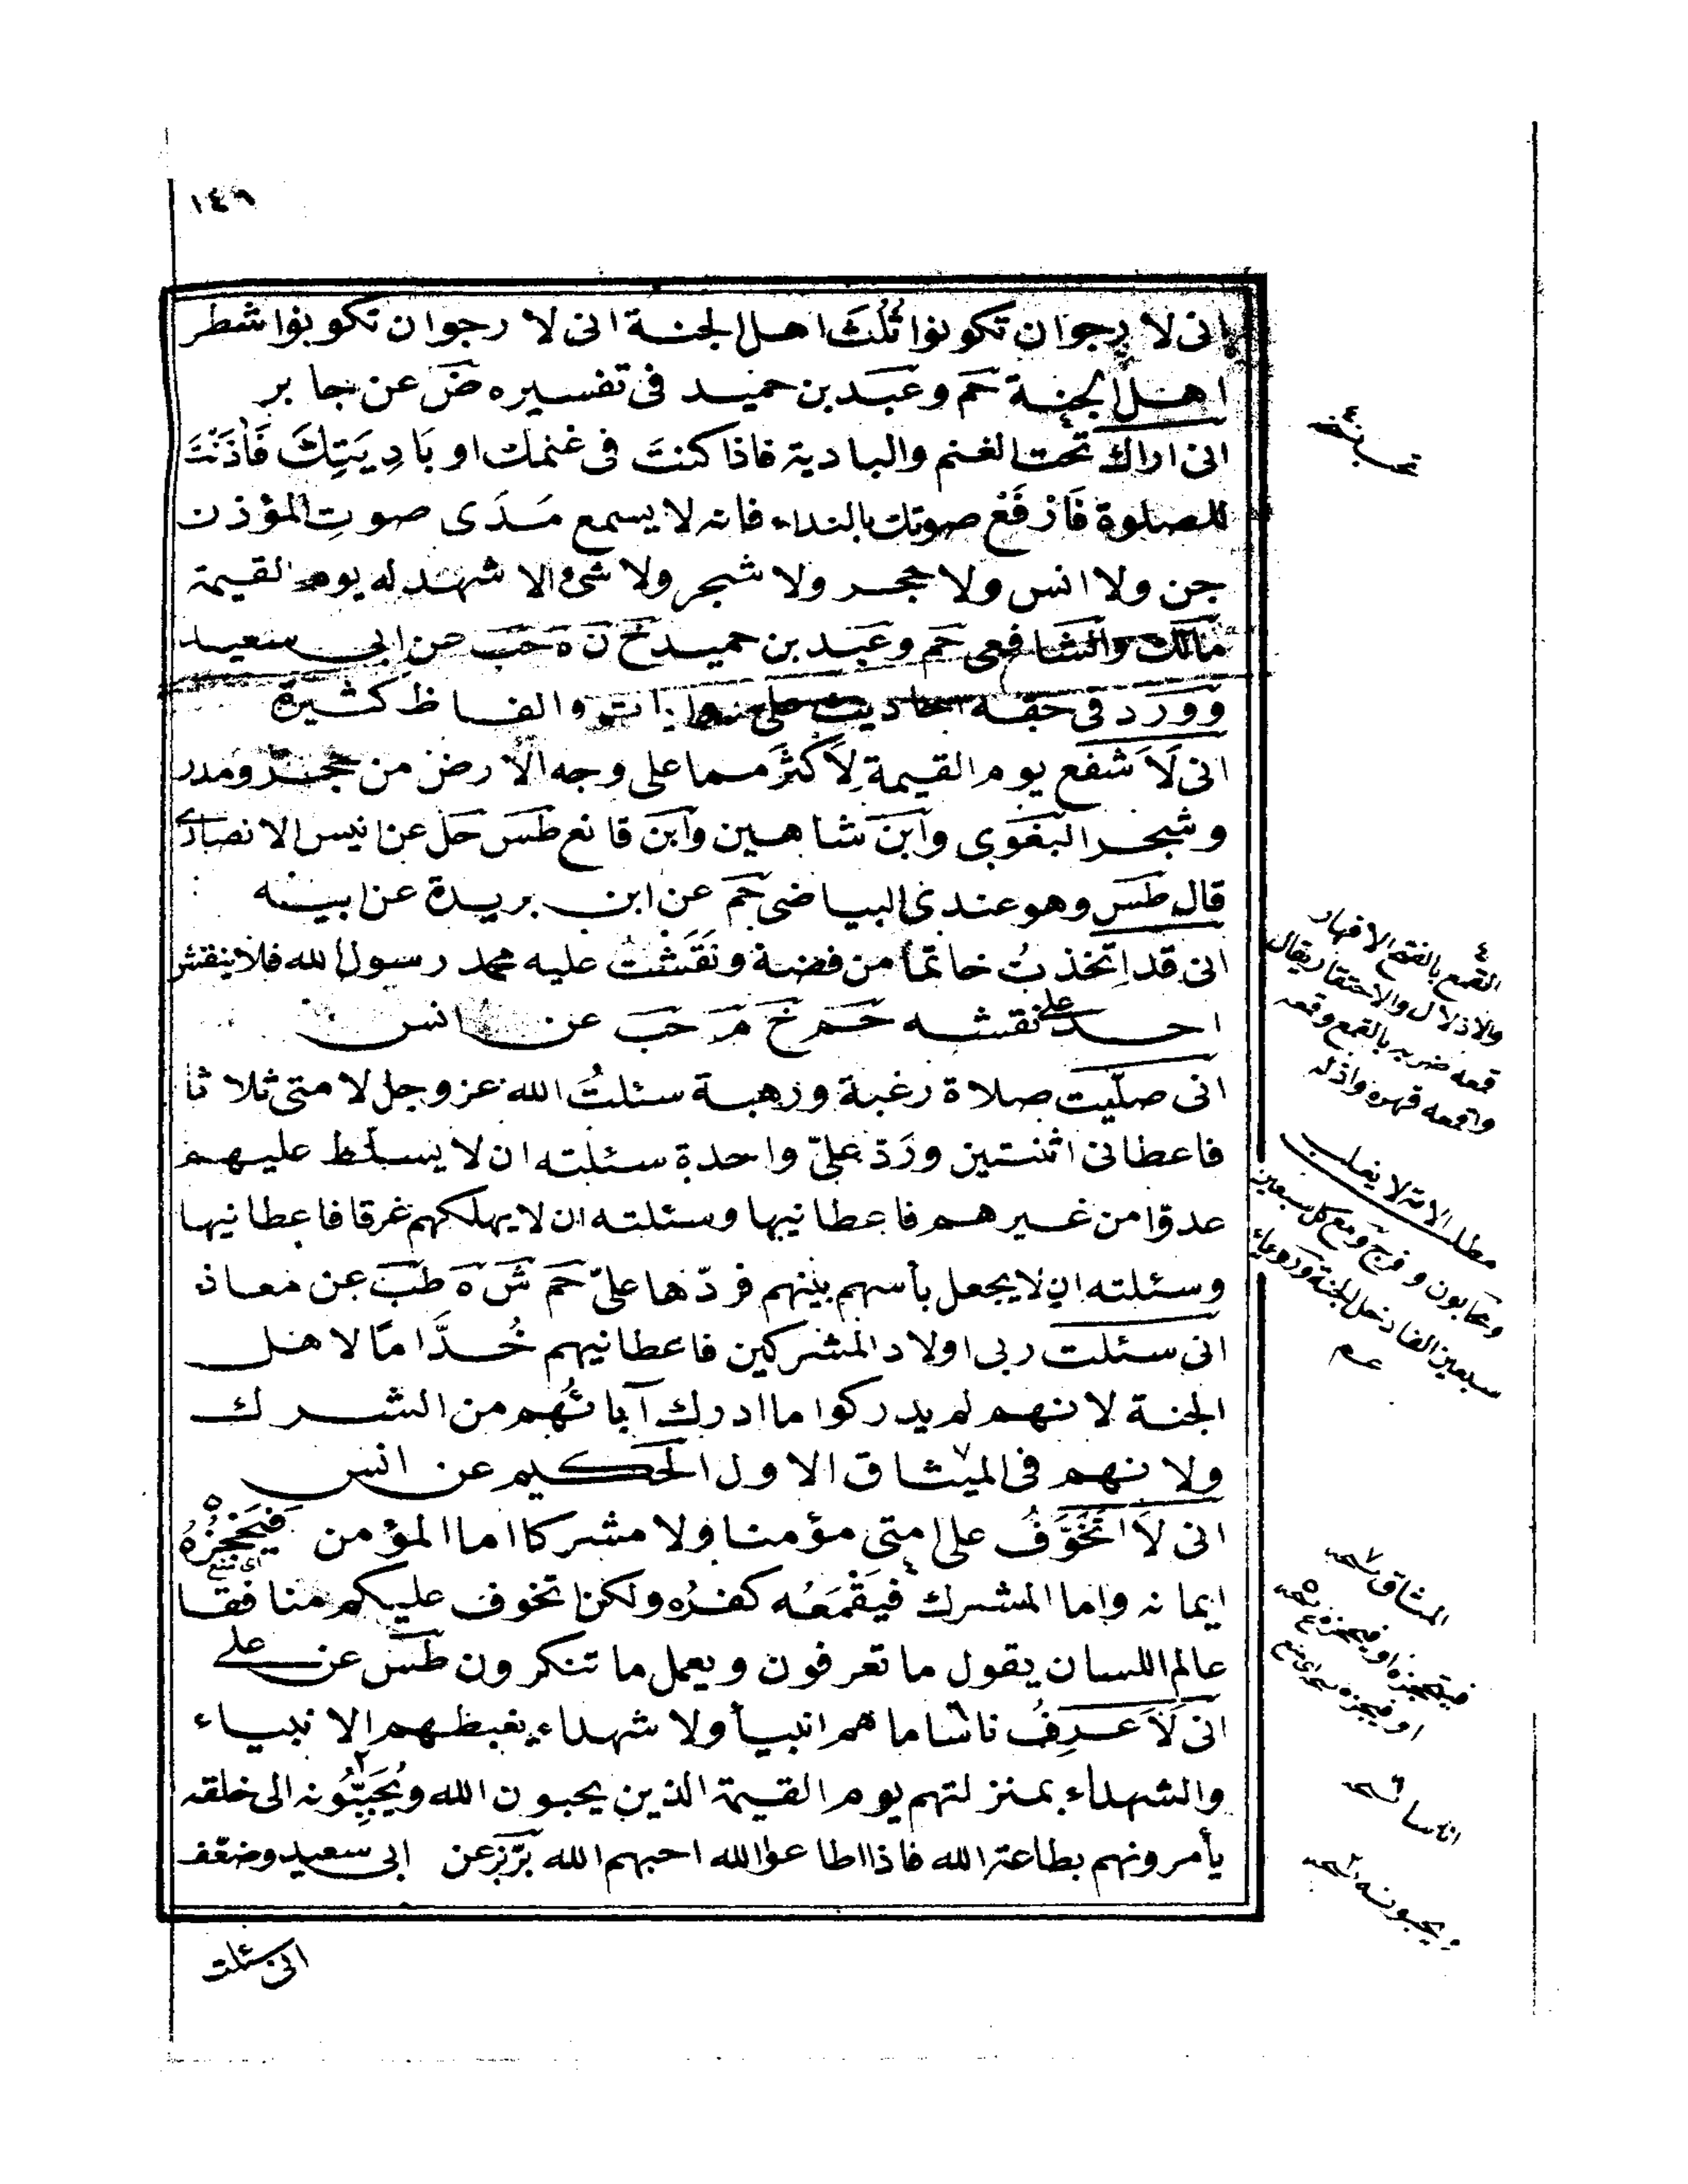 ١٤٩
انى لا رجوان تكونوا ثُلُثَ اهل الجنة انى لا رجوان تكونوا شطر
اهل الجنة حَم وعَبد بن حميد فى تفسيره ضَ عن جابر
انى اراك تحت الغنم والبادية فاذا كنتَ فى غنمك او بَادِيَتِكَ فَاَذَنْتَ
للصلوة فَارْفَعْ صوتك بالنداء فانه لا يسمع مَدَى صوتِ المؤذن
جن ولا انس ولا حجر ولا شجر ولا شئ الا شهد له يوم القيمة
مَالك والشَافعى حَم وعَبد بن حميد خَ نَ هَ حَبَ عن ابى سعيد
وورد فى حقه احاديث على والفاظ كثيرة
انى لَاَشفع يوم القيمة لِاَكثرَ مما على وجه الارض من حجر ومدر
وشجر البَغَوى وابَن شاهين وابَن قانع طَسَ حَل عن انيس الانصارى
قال طَسَ وهو عندى البياضى حَم عن ابن بريدة عن ابيه
انى قد اتخذتُ خاتمًا من فضة ونَقَشْتُ عليه محمد رسول الله فلا ينقش
احد على نقشه حَم خَ مَ حَبَ عن انس
انى صلّيت صلاة رغبة ورهبة سئلتُ الله عز وجل لامتى ثلاثا
فاعطانى اثنتين ورَدّ علىّ واحدة سئلته ان لا يسلّط عليهم
عدوّا من غيرهم فاعطانيها وسئلته ان لا يهلكهم غرقا فاعطانيها
وسئلته ان لا يجعل بأسهم بينهم فردّها علىّ حَم شَ هَ طَبَ عن معاذ
انى سئلت ربى اولاد المشركين فاعطانيهم خُدَّامًا لاهل
الجنة لانهم لم يدركوا ما ادرك آبائُهُم من الشرك
ولانهم فى الميثاق الاول الحَكيم عن انس
انى لَا اَتَخَوَّفُ على امتى مؤمنا ولا مشركا اما المؤمن فَيَحْجُزُهُ
اى يمنع
ايمانه واما المشرك فَيَقْمَعُه كفرُه ولكن اتخوف عليكم منافقا
عالم اللسان يقول ما تعرفون ويعمل ما تنكرون طَسَ عن على
انى لَاَعرِفُ ناسًا ما هم انبيأ ولا شهداء يغبطهم الانبياء
والشهداء بمنزلتهم يوم القيمة الذين يحبون الله ويُحَبِّبُونه الى خلقه
يأمرونهم بطاعة الله فاذا اطاعوا الله احبهم الله بَزَّزَ عن ابى سعيد وضعّف
انى سئلت
القمع بالفتح الاقهار
والاذلال والاحتقار يقال
قمعه ضربه بالقمع وقمعه
واقمعه قهره واذله
مطلب الامة لا يغلب
ومع كل سبعين
سبعين الفا دخل الجنة
المثاق
اناسا
ويحبونه